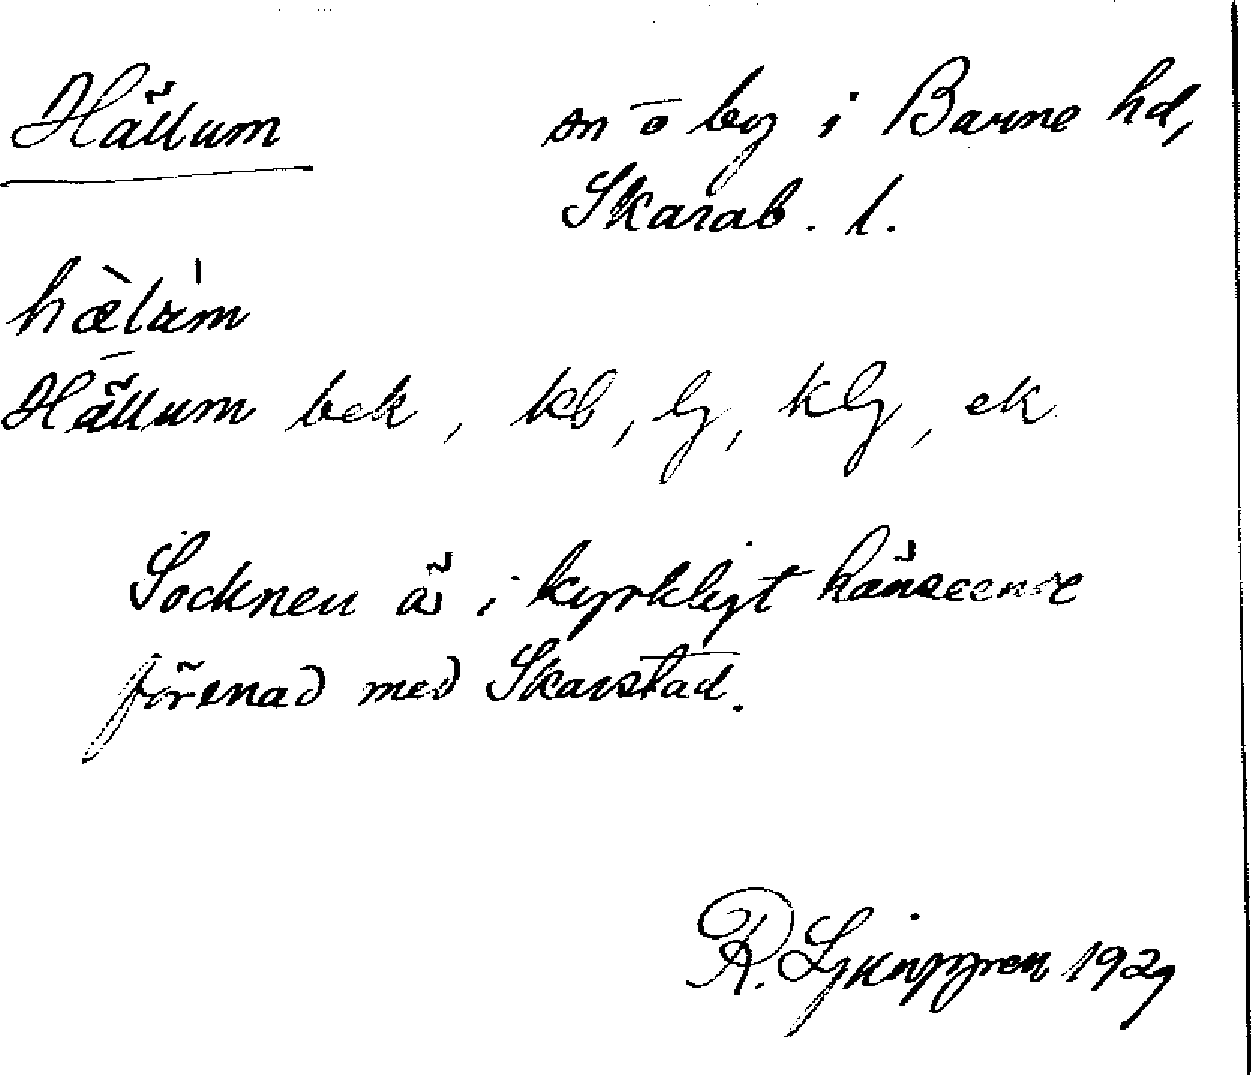 Hällum sn o by i Barne hd,
Skarab. l.
hæ̀lu̍m
Hällum bek, kb, lg, klg, ek
Socknen är i kyrkligt hänseende
förenad med Skarstad.
R. Ljunggren 1929